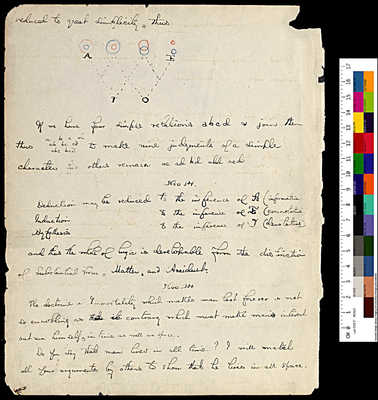 reduced to great simplicity, thus
A
I O
If we have four simple relations a b c d & join them
thus to make nine judgments of a simple
character others remain ac ad bd abd acd
Nov 14.
Deduction may be reduced to the inference of
Induction to the inference of
Hypothesis to the inference of I
and that the whole of logic is developable from the distinction
of Substantial Form, Matter, and Accident.
Nov.
The doctrine of Immortality which makes man last forever is not
so ennobling as the contrary which must make man's
out see himself, in time as well as space.
Do you say that man lives in all time? I will match
all your arguments by others to show that he lives in all space.